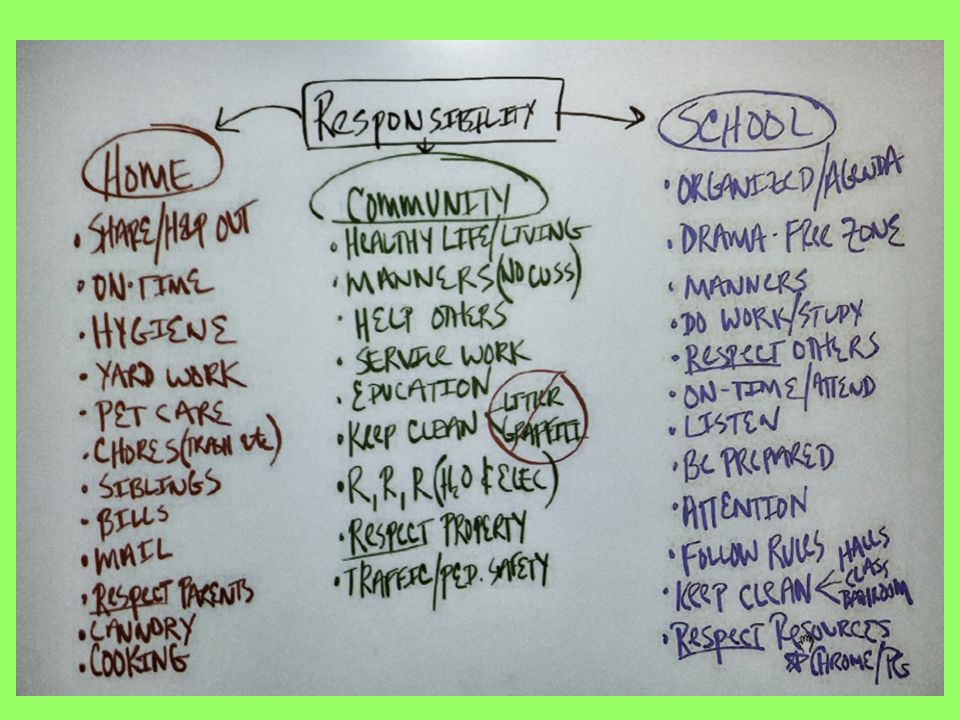 RESPONSIBILITY
HOME
• SHARE/HELP OUT
• ON-TIME
• HYGIENE
• YARD WORK
• PET CARE
• CHORES (TRASH etc)
• SIBLINGS
• BILLS
• MAIL
• RESPECT PARENTS
• LANNDRY
• COOKING
COMMUNITY
• HEALTHY LIFE/LIVING
• MANNERS (NO CUSS)
• HELP OTHERS
• SERVICE WORK
• EDUCATION
• KEEP CLEAN < LITTER
GRAFFITI
• R, R, R (H2O & ELEC)
• RESPECT PROPERTY
• TRAFFIC/PED. SAFETY
SCHOOL
• ORGANIZED/AGENDA
• DRAMA-FREE ZONE
• MANNERS
• DO WORK/STUDY
• RESPECT OTHERS
• ON-TIME/ATTEND
• LISTEN
• BE PREPARED
• ATTENTION
• FOLLOW RULES
• KEEP CLEAN < HALLS
CLASS
BATHROOM
• RESPECT RESOURCES
* CHROME/PCs